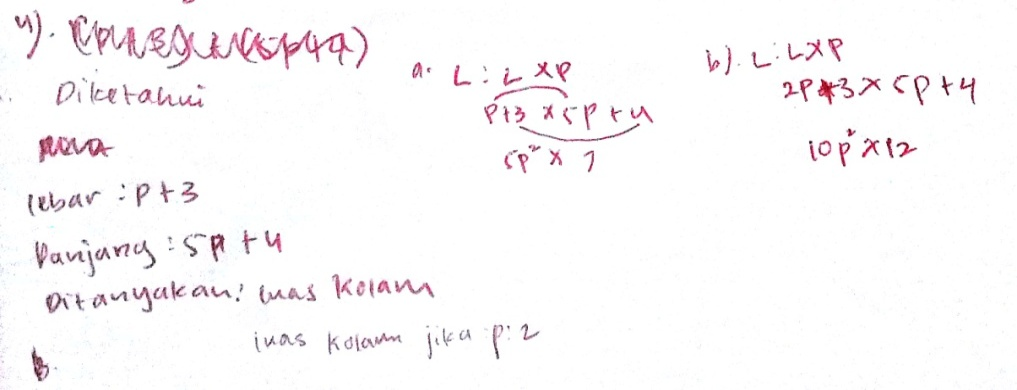 4).
Diketahui
lebar : p+3
Panjang : 5p + 4
Ditanyakan : luas kolam
luas kolam jika p : 2
B.
a. L : L x P
p+3 x 5p + 4
5p² x 7
b). L : L x P
2p+3 x 5p +4
10p² x 12